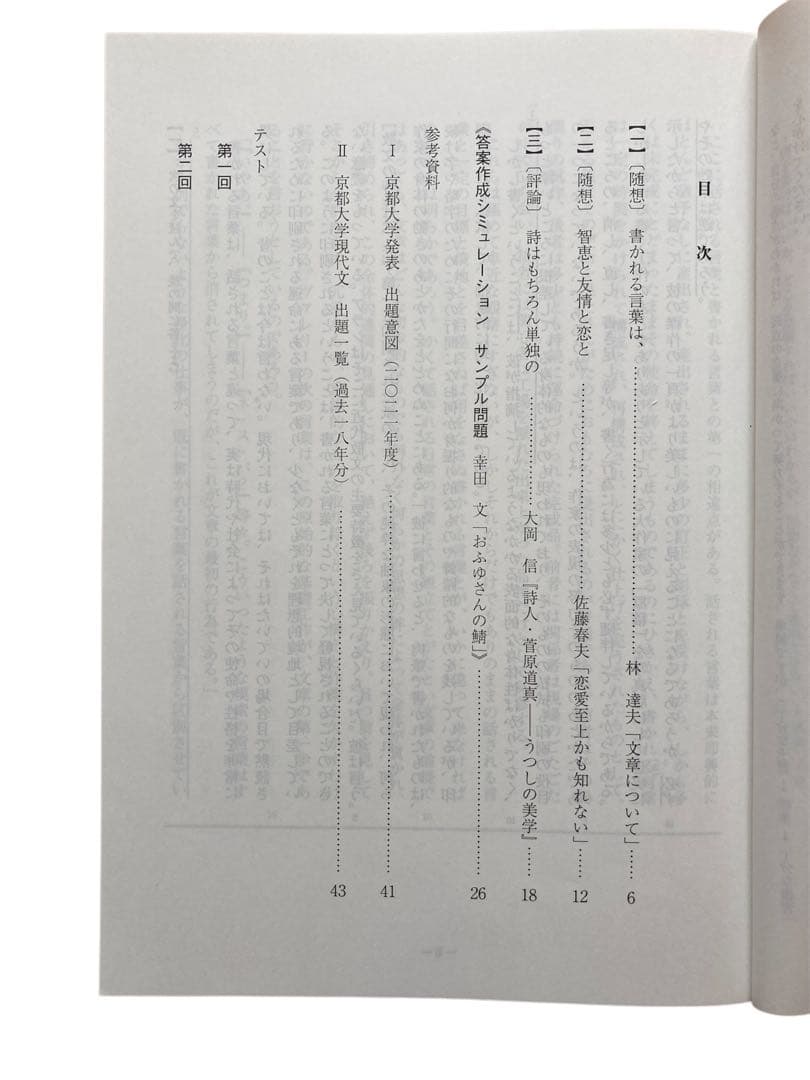 目次
【一】〔随想〕 書かれる言葉は、……………………林 達夫「文章について」……6
【二】〔随想〕 智恵と友情と恋と……………………佐藤春夫「恋愛至上かも知れない」……12
【三】〔評論〕 詩はもちろん単独の……………………大岡 信『詩人・菅原道真――うつしの美学』……18
《答案作成シミュレーション サンプル問題 幸田 文「おふゆさんの鯖」》……………………26
参考資料
Ⅰ 京都大学発表 出題意図（二〇二一年度）……………………41
Ⅱ 京都大学現代文 出題一覧（過去一八年分）……………………43
テスト
第一回
第二回